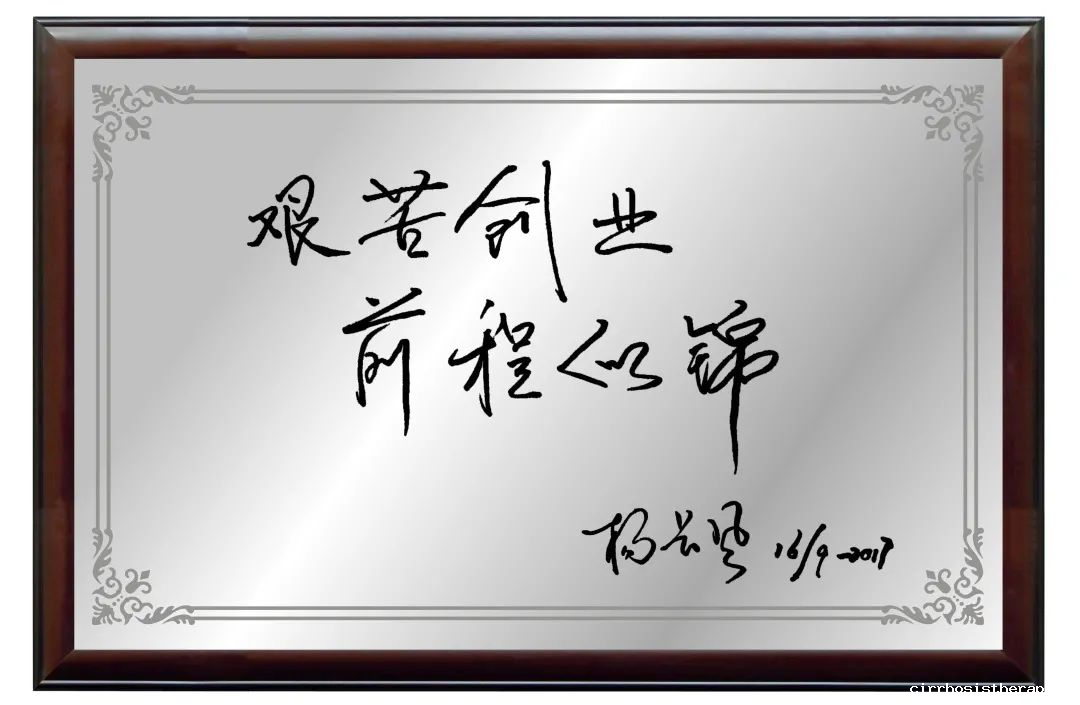 艰苦创业
前程似锦
杨 16/9-2017
cirrhosistherap